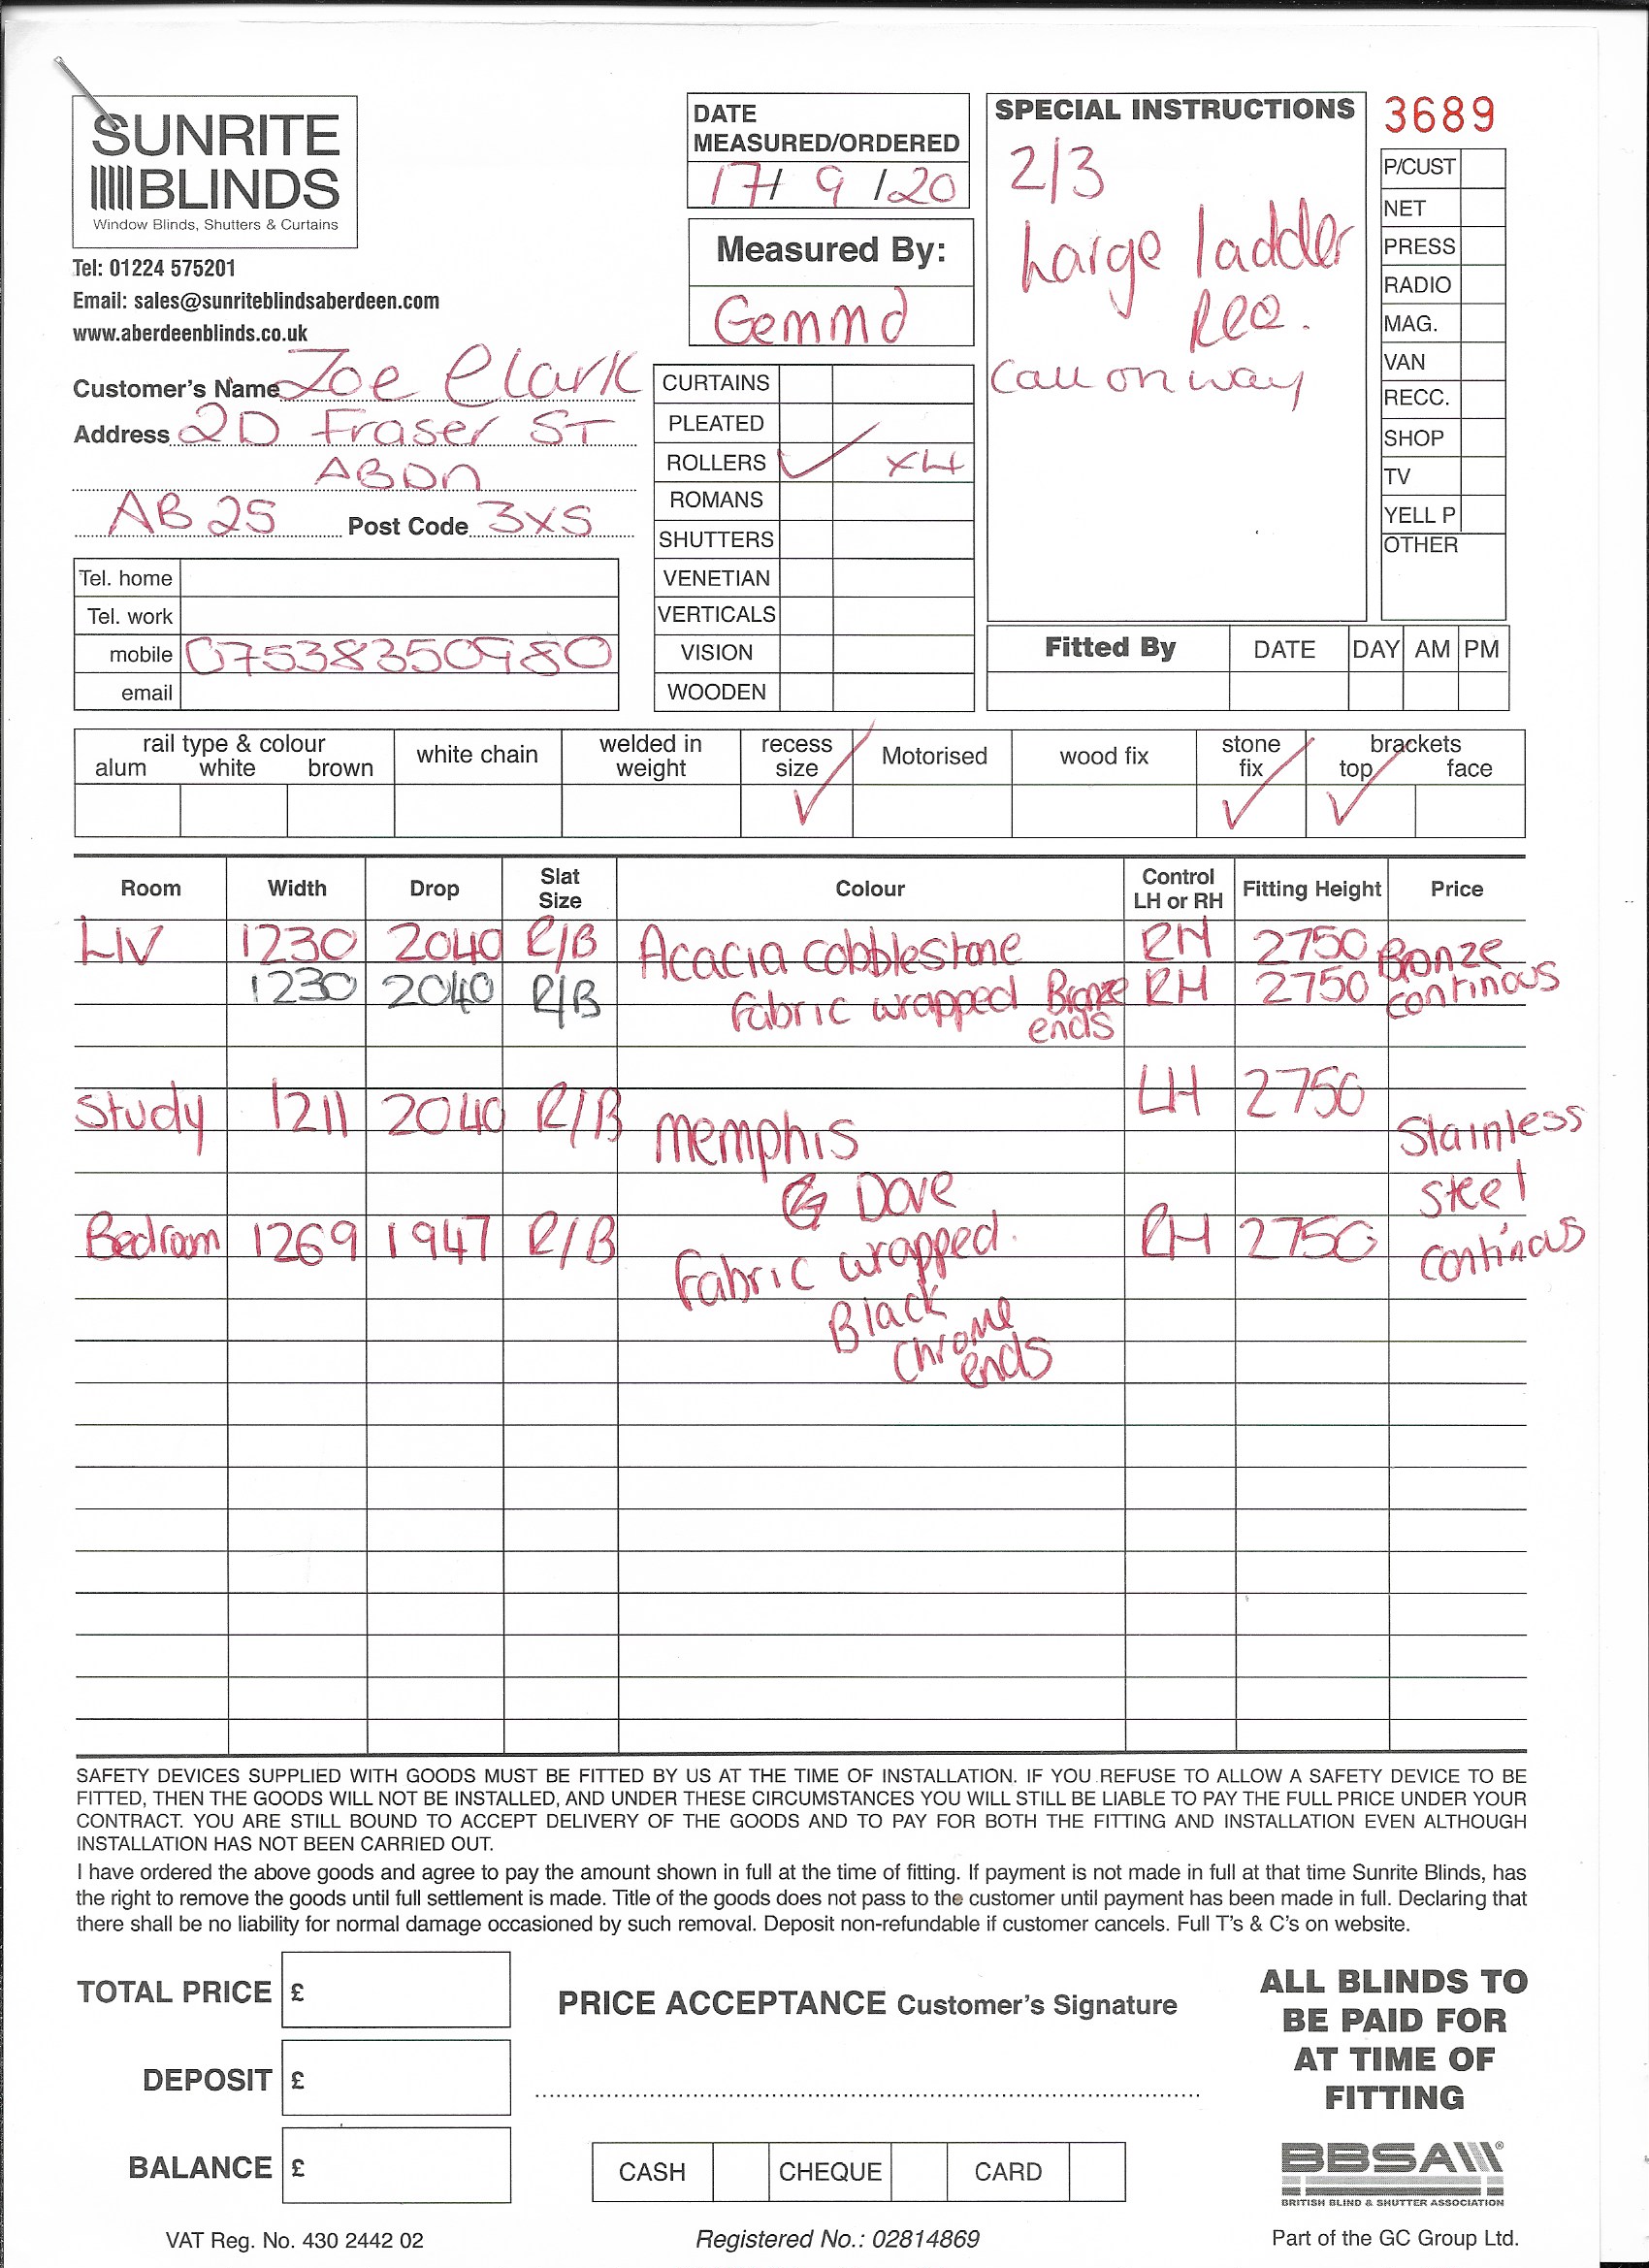 SUNRITE
BLINDS
Window Blinds, Shutters & Curtains
Tel: 01224 575201
Email: sales@sunriteblindsaberdeen.com
www.aberdeenblinds.co.uk
DATE
MEASURED/ORDERED
17/ 9 /20
Measured By:
Gemma
SPECIAL INSTRUCTIONS
2/3
Large ladder
REQ.
Call on way
3689
P/CUST
NET
PRESS
RADIO
MAG.
VAN
RECC.
SHOP
TV
YELL P
OTHER
Customer's Name Zoe Clark
Address 2D Fraser ST
ABDN
AB25 Post Code 3XS
Tel. home
Tel. work
mobile 07538350980
email
CURTAINS
PLEATED
ROLLERS ✓ x4
ROMANS
SHUTTERS
VENETIAN
VERTICALS
VISION
WOODEN
Fitted By DATE DAY AM PM
rail type & colour
alum white brown
white chain
welded in
weight
recess
size
✓
Motorised
wood fix
stone
fix
✓
brackets
top face
✓
Room Width Drop Slat Size Colour Control LH or RH Fitting Height Price
LIV 1230 2040 R/B Acacia cobblestone RH 2750 Bronze
1230 2040 R/B Fabric wrapped Bronze ends RH 2750 continous
Study 1211 2040 R/B Memphis LH 2750 Stainless
Dove steel
Bedroom 1269 1947 R/B Fabric wrapped. RH 2750 continous
Black
Chrome
ends
SAFETY DEVICES SUPPLIED WITH GOODS MUST BE FITTED BY US AT THE TIME OF INSTALLATION. IF YOU REFUSE TO ALLOW A SAFETY DEVICE TO BE
FITTED, THEN THE GOODS WILL NOT BE INSTALLED, AND UNDER THESE CIRCUMSTANCES YOU WILL STILL BE LIABLE TO PAY THE FULL PRICE UNDER YOUR
CONTRACT. YOU ARE STILL BOUND TO ACCEPT DELIVERY OF THE GOODS AND TO PAY FOR BOTH THE FITTING AND INSTALLATION EVEN ALTHOUGH
INSTALLATION HAS NOT BEEN CARRIED OUT.
I have ordered the above goods and agree to pay the amount shown in full at the time of fitting. If payment is not made in full at that time Sunrite Blinds, has
the right to remove the goods until full settlement is made. Title of the goods does not pass to the customer until payment has been made in full. Declaring that
there shall be no liability for normal damage occasioned by such removal. Deposit non-refundable if customer cancels. Full T's & C's on website.
TOTAL PRICE £
DEPOSIT £
BALANCE £
PRICE ACCEPTANCE Customer's Signature
CASH CHEQUE CARD
ALL BLINDS TO
BE PAID FOR
AT TIME OF
FITTING
BBSA
BRITISH BLIND & SHUTTER ASSOCIATION
VAT Reg. No. 430 2442 02
Registered No.: 02814869
Part of the GC Group Ltd.